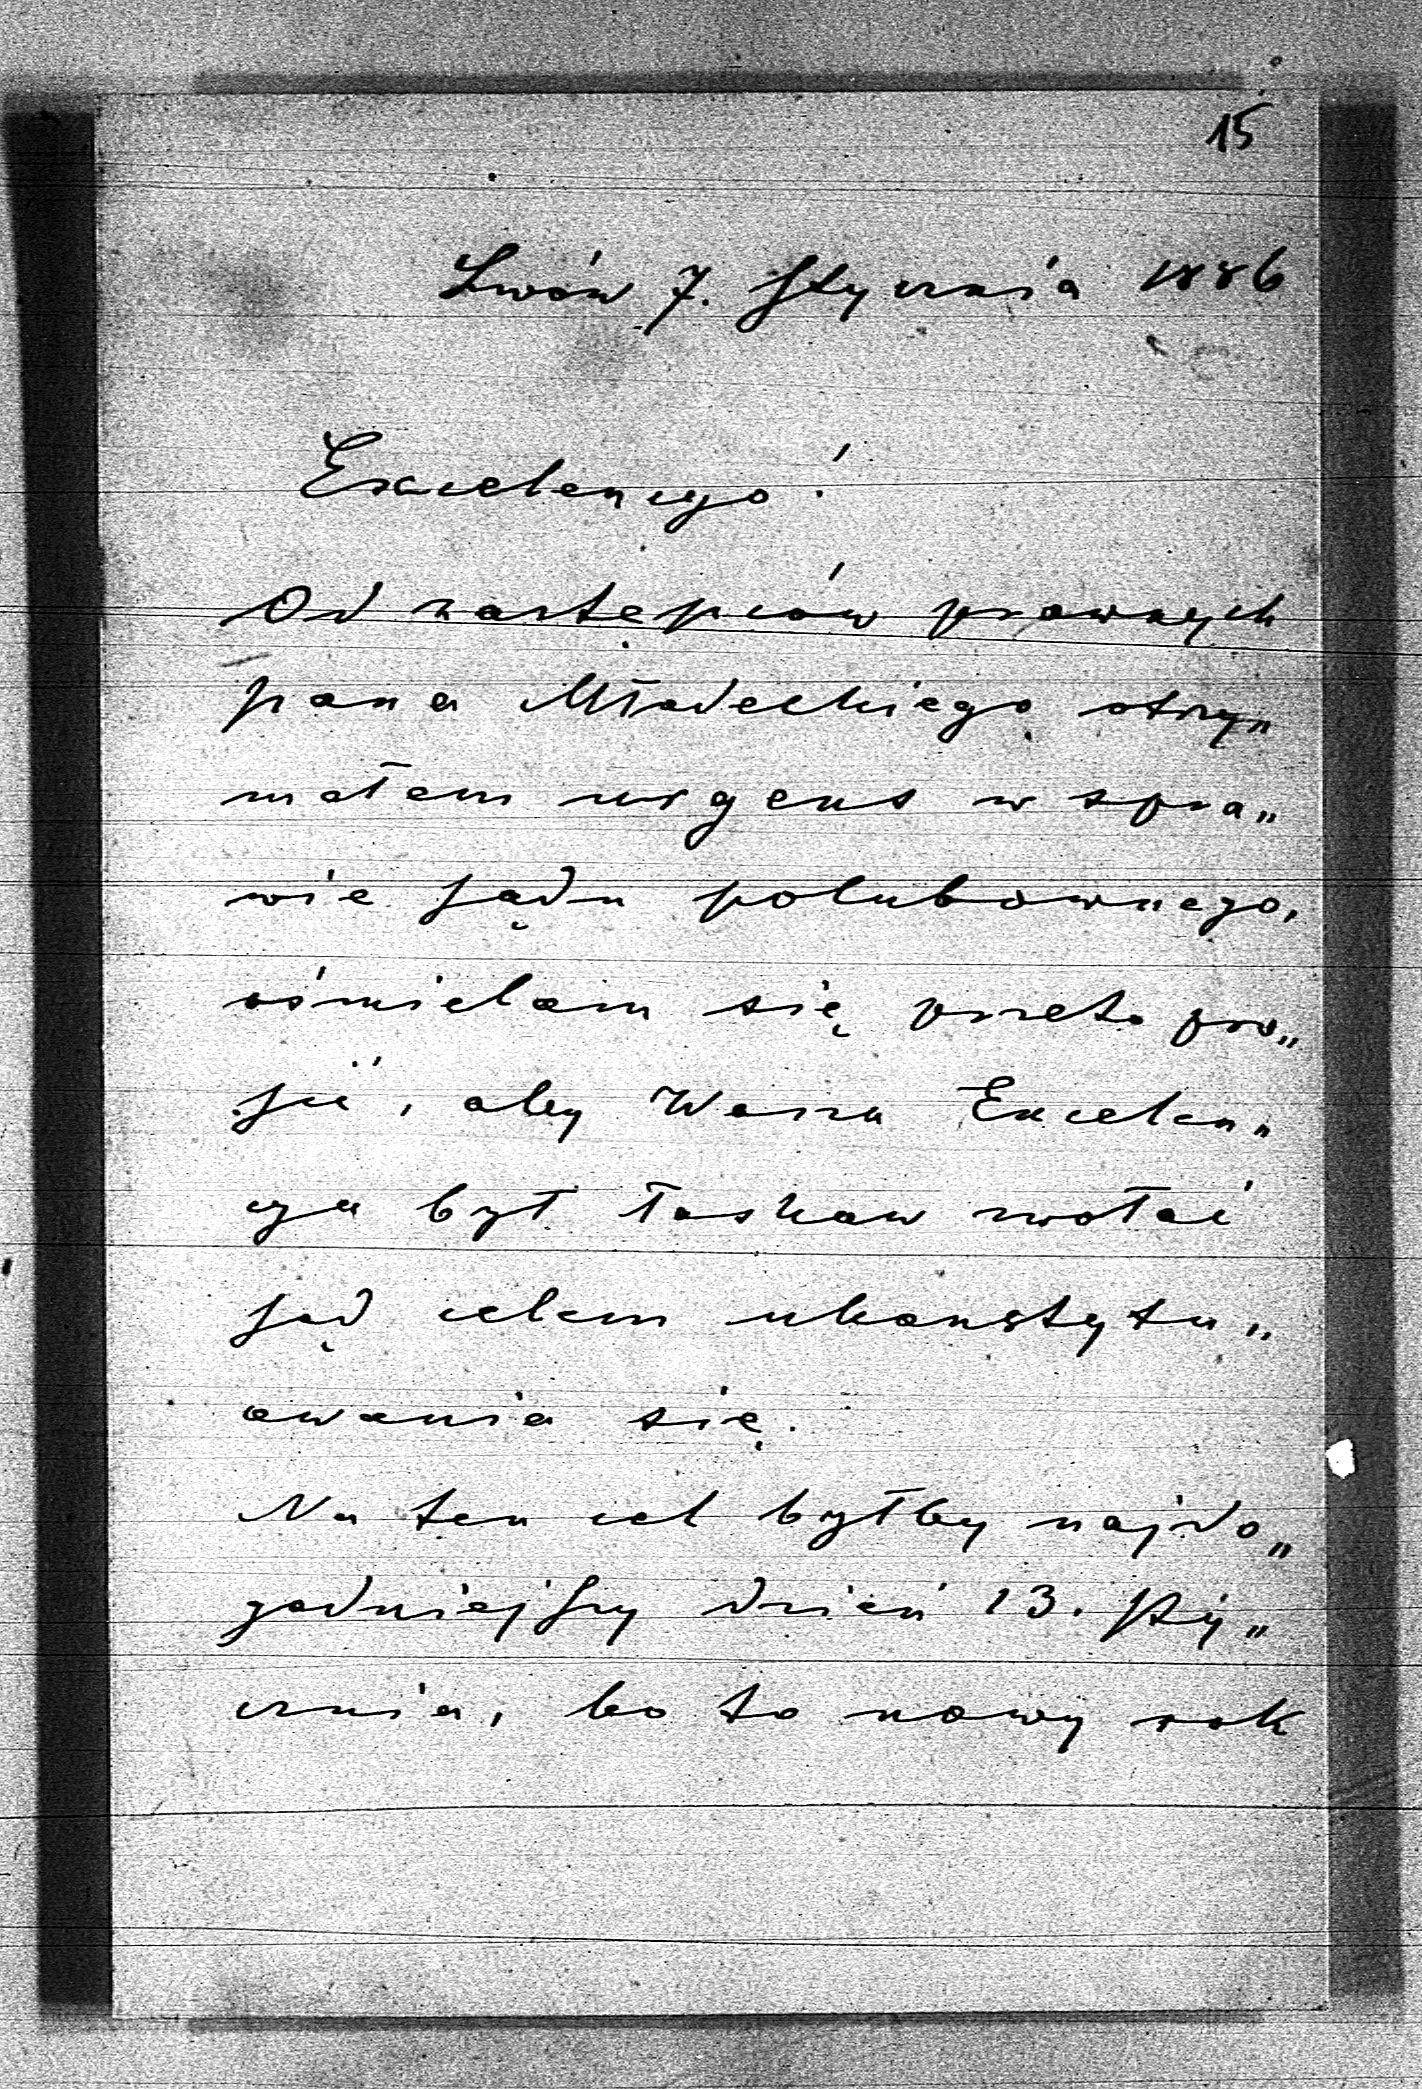 15
Lwów 7. Stycznia 1886
Excelencyo!
Od zastępców prawnych
pana Młodeckiego otrzy„
małem urgens w spra„
wie sądu polubownego,
ośmielam się przeto pro„
sić, aby Wasza Excelen„
cya był łaskaw zwołać
sąd celem ukonstytu„
owania się.
Na ten cel byłby najdo„
godniejszy dzień 13. sty„
cznia, bo to nowy rok